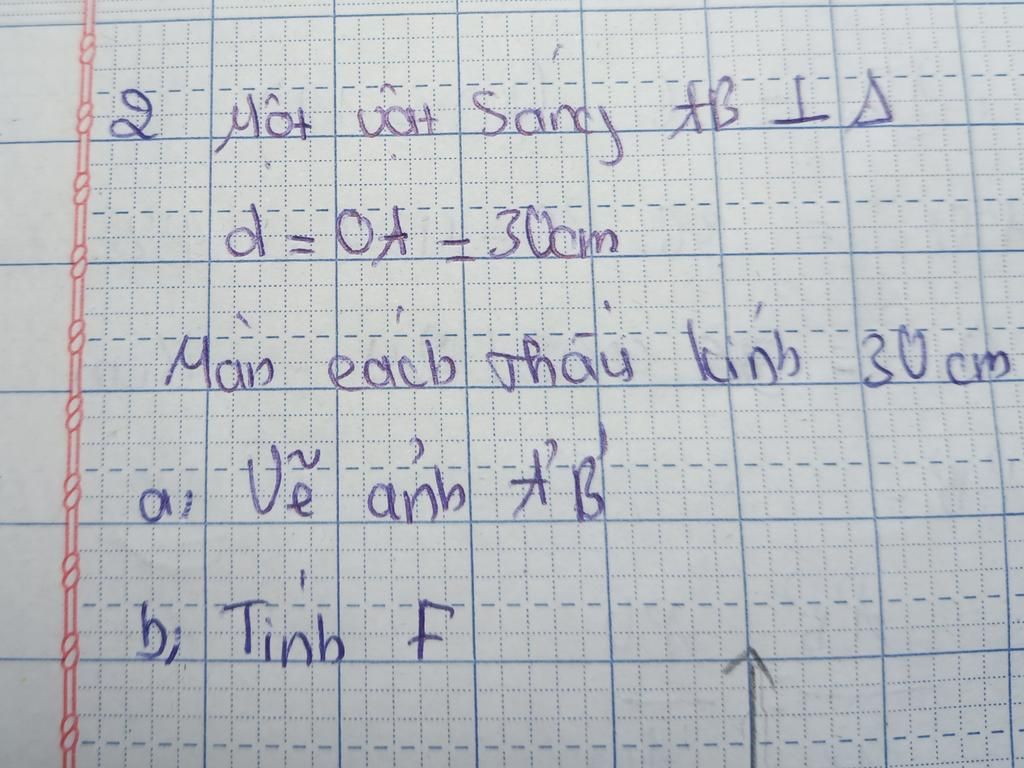 2 Một vật sáng AB ⊥ Δ
d = OA = 30cm
Màn cách thấu kính 30cm
a; Vẽ ảnh A'B'
b; Tính F